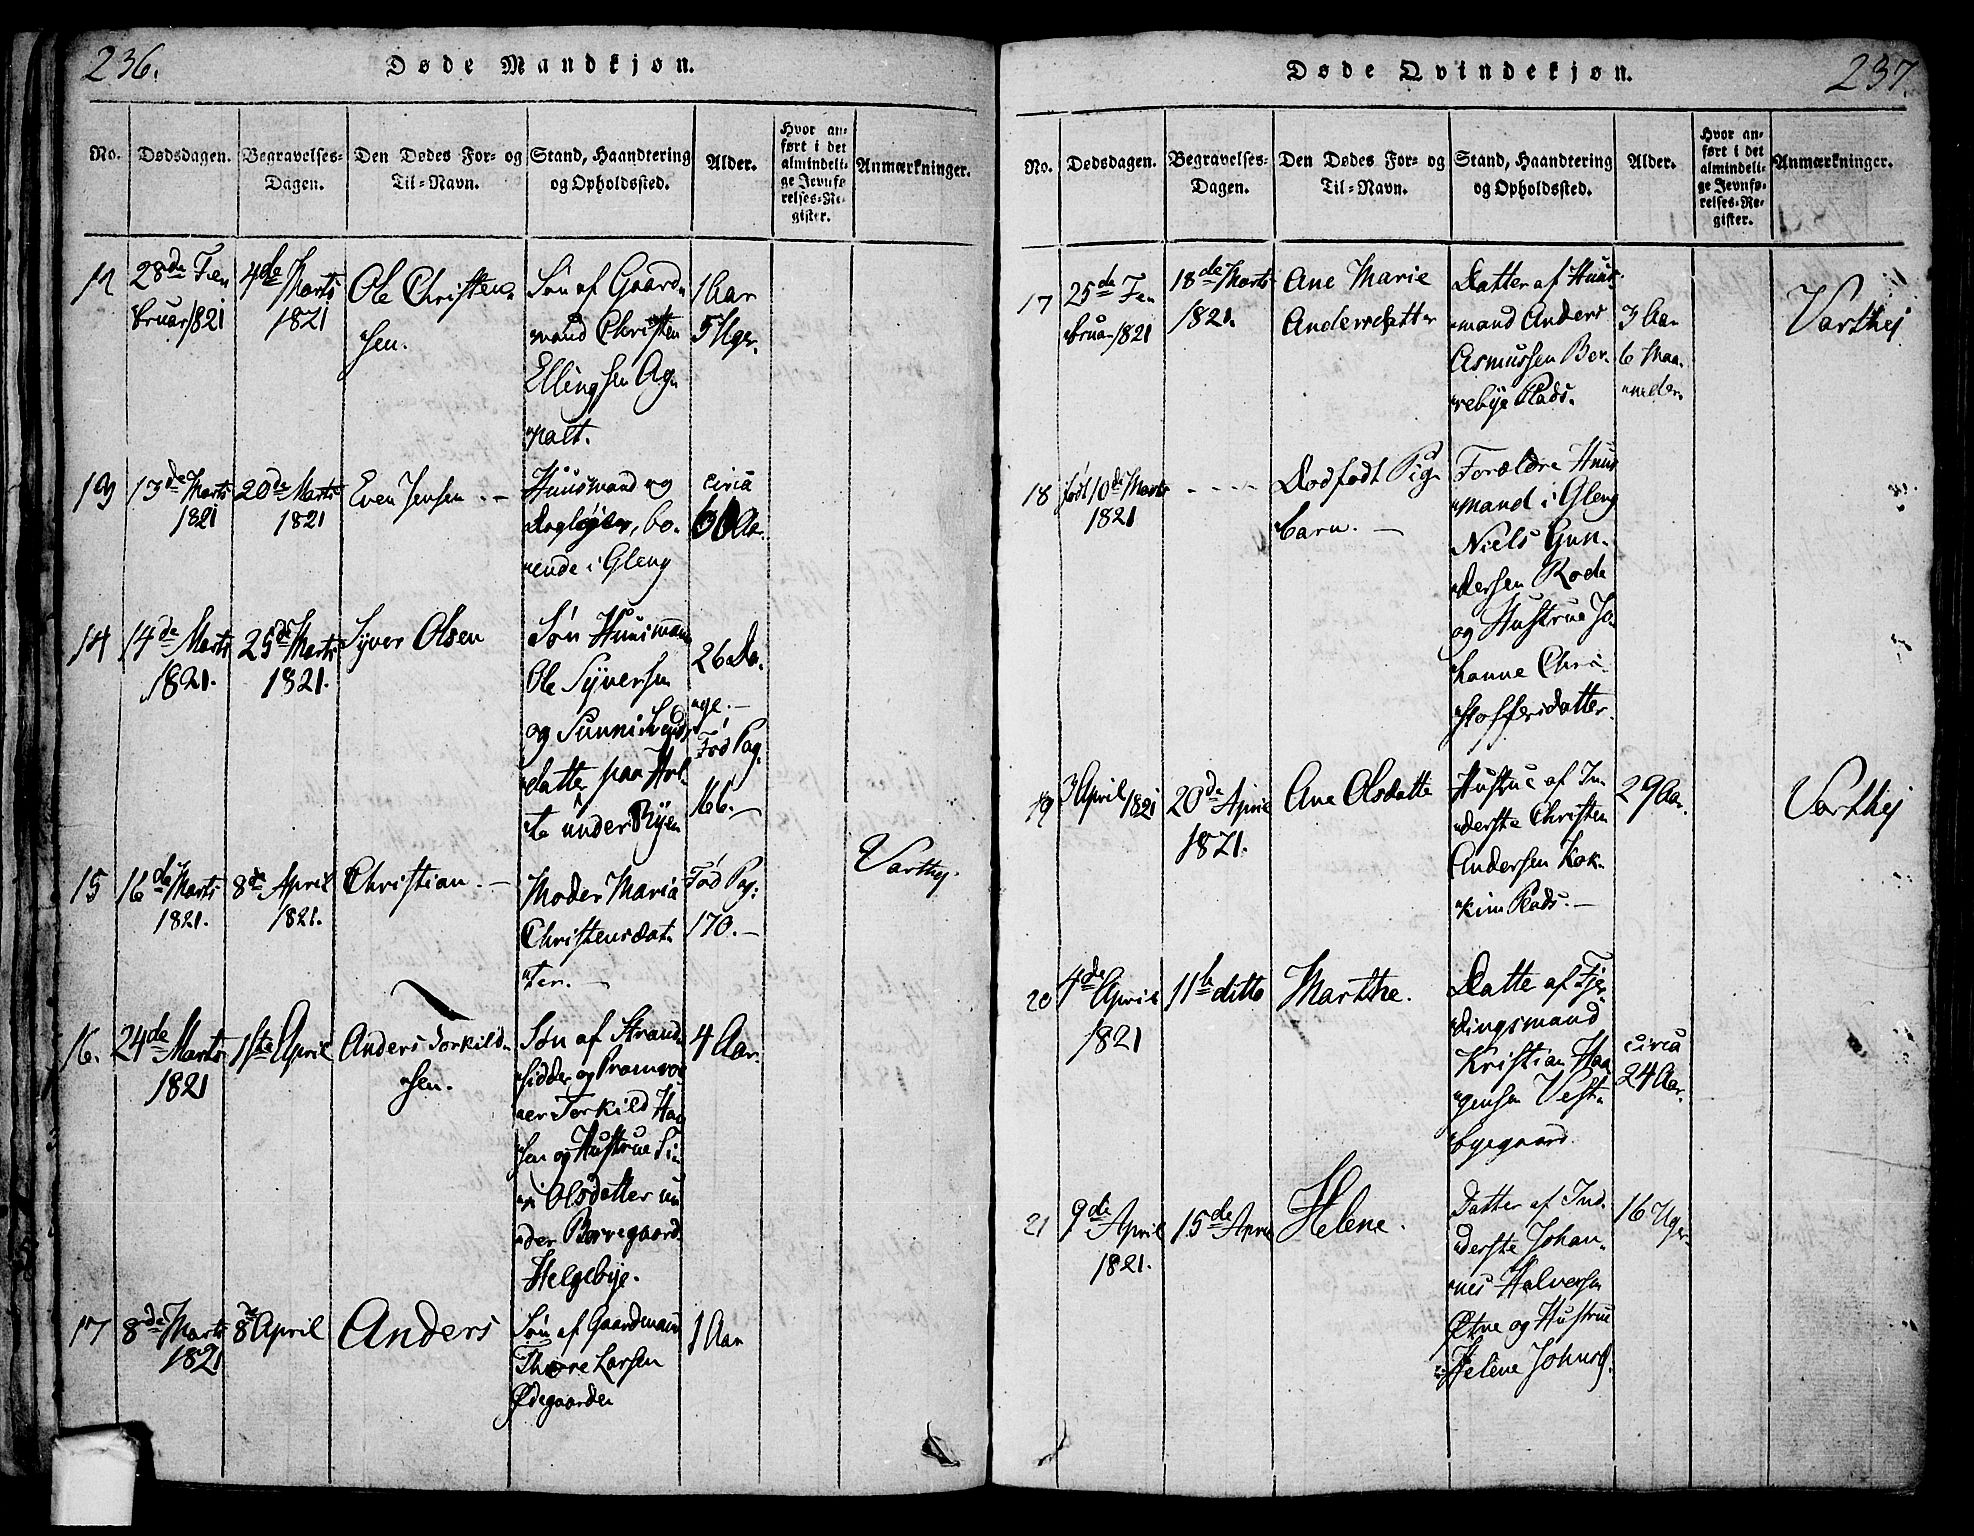 236.
Døde Mandkjøn.
No.
Dødsdagen.
Begravelses-
Dagen.
Den Dødes For- og
Til-Navn.
Stand, Haandtering
og Opholdssted.
Alder.
Hvor an-
ført i det
almindeli-
ge Jevnfø-
relses-Re-
gister.
Anmærkninger.
12
28de Fe-
bruar 1821
4de Marts
1821
Ole Christen-
sen.
Søn af Gaard-
mand Christen
Ellingsen Ag-
palt.
1 Aar
5 Uger.
13
13de Marts
1821
20de Marts
1821
Even Jensen. -
Huusmand og
Dagløjer, bo-
ende i Gleng
circa
60 Aar.
14
14de Marts
1821.
25de Marts
1821.
Syver Olsen
Søn Huusmann
Ole Syversen
og Sunni Svends
datter paa Hol-
te under Byen
26 Da-
ge. -
Fød Pag.
166. -
15
16de Marts
1821.
8de April
1821.
Christian. -
Moder Maria
Christensdat-
ter. -
Fød Pag.
170. -
Varthej.
16.
24de Marts
1821
1ste April
Anders Torkild-
sen.
Søn af Strand-
sidder og Pramro-
er Torkild Han-
sen og Hustrue Si-
ri Olsdatter un-
der Borregaard
Helgebye.
4 Aar.
17
8de Marts
1821
8de April
Anders
Søn af Gaardmand
Thore Larsen
Ødegaarden
1 Aar
237.
Døde Qvindekjøn.
No.
Dødsdagen.
Begravelses-
Dagen.
Den Dødes For- og
Til-Navn.
Stand, Haandtering
og Opholdssted.
Alder.
Hvor an-
ført i det
almindeli-
ge Jevnfø-
relses-Re-
gister.
Anmærkninger.
17
25de Fe-
bruar 1821
18de Marts
1821.
Ane Marie
Andersdatter
Datter af Huus-
mand Anders
Asmussen Bor-
rebye Plads.
3 Aar
6 Maa-
neder.
Varthej
18
født 10de Marts
1821
- - - -
Dødfødt Pige-
barn. -
Forældre Huus-
mand i Gleng
Niels Gun-
dersen Rode
og Hustrue Jo-
hanne Chri-
stoffersdatter.
19
3 April 1821
20de April
1821.
Ane Olsdatte
Hustrue af In-
derste Christen
Andersen Kok-
kim Plads. -
29 Aar.
Varthej
20
4de April
1821
11te ditto
Marthe.
Datte af Fjer-
dingsmand
Kristian Haa-
gensen Vest-
byegaard.
circa
24 Aar.
21
9de April
1821.
15de April
Helene.
Datter af Ind-
derste Johan-
nes Halversen
Øtne og Hustrue
Helene Johnsd.
16 Uger.